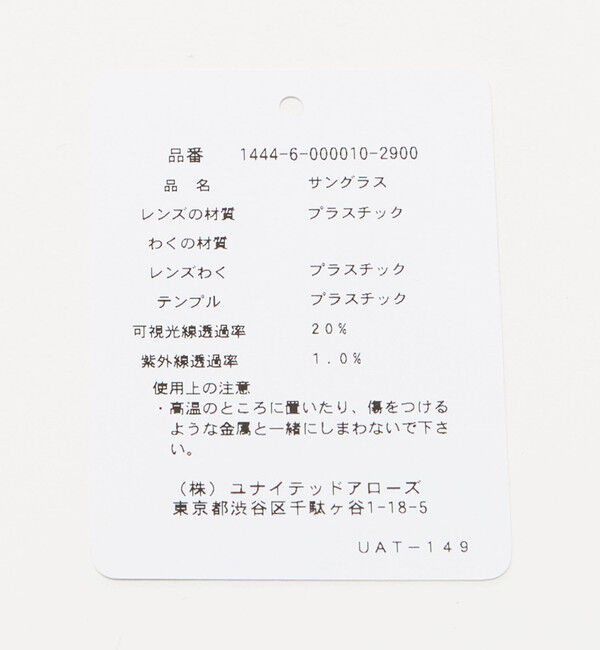 品番 1444-6-000010-2900
品 名 サングラス
レンズの材質 プラスチック
わくの材質
レンズわく プラスチック
テンプル プラスチック
可視光線透過率 20%
紫外線透過率 1.0%
使用上の注意
・高温のところに置いたり、傷をつける
ような金属と一緒にしまわないで下さ
い。
(株) ユナイテッドアローズ
東京都渋谷区千駄ヶ谷1-18-5
UAT-149